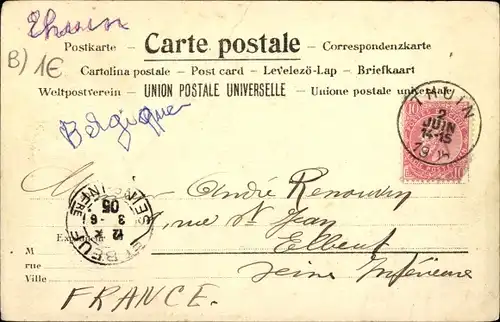 Thuin
B) 1€
Postkarte - Carte postale - Correspondenzkarte
Cartolina postale - Post card - Levelező-Lap - Briefkaart
Weltpostverein - UNION POSTALE UNIVERSELLE - Unione postale universale
Belgique
THUIN
2
JUIN
14-15
10 10
André
rue St Jean
Elbeuf
Seine Inférieure
FRANCE.
ELBEUF
SEINE INFRE
12
3 -6
05
M
rue
Ville